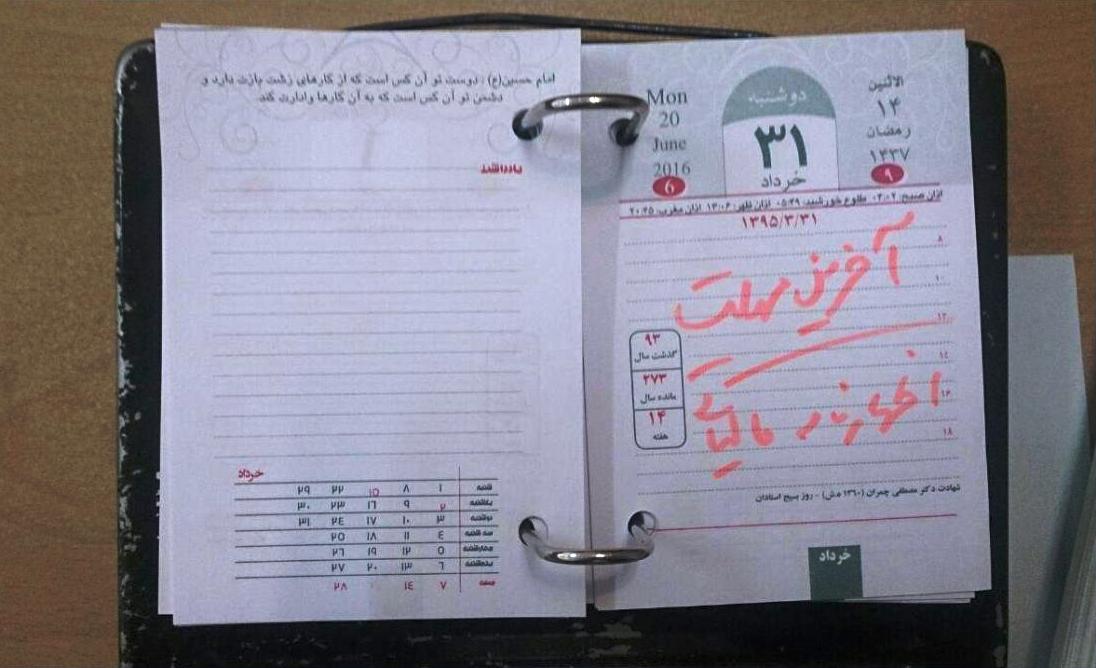 امام حسین(ع) : دوست تو آن کس است که از کارهای زشت بازت دارد و
دشمن تو آن کس است که به آن کارها وادارت کند.
یادداشت
خرداد
شنبه ۱ ۸ ۱۵ ۲۲ ۲۹
یکشنبه ۲ ۹ ۱۶ ۲۳ ۳۰
دوشنبه ۳ ۱۰ ۱۷ ۲۴ ۳۱
سه شنبه ۴ ۱۱ ۱۸ ۲۵
چهارشنبه ۵ ۱۲ ۱۹ ۲۶
پنجشنبه ۶ ۱۳ ۲۰ ۲۷
جمعه ۷ ۱۴ ۲۸
Mon
20
June
2016
6
دوشنبه
۳۱
خرداد
الاثنین
۱۴
رمضان
۱۴۳۷
۹
اذان صبح: ۰۴:۰۲ طلوع خورشید: ۰۵:۴۹ اذان ظهر: ۱۳:۰۶ اذان مغرب: ۲۰:۴۵
۱۳۹۵/۳/۳۱
۸
۱۰
۱۲
۱۴
۱۶
۱۸
آخرین مهلت
اظهارنامه مالیاتی
۹۳
گذشت سال
۲۷۳
مانده سال
۱۴
هفته
شهادت دکتر مصطفی چمران (۱۳۶۰ ه.ش) - روز بسیج استادان
خرداد